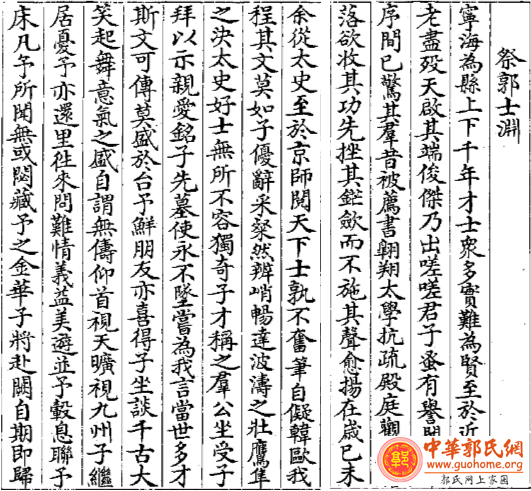 祭郭士淵
寧海為縣上下千年才士眾多實難為賢至於近
老盡歿天啟其端俊傑乃出嗟嗟君子蚤有譽聞
序間已驚其羣昔被薦書翱翔太學抗疏殿庭觀
落欲收其功先挫其鋩斂而不施其聲愈揚在歲己未
余從太史至於京師閱天下士孰不奮筆自儗韓歐我
程其文莫如子優辭采粲然辨峭暢達波濤之壯鷹隼
之決太史好士無所不容獨奇子才稱之羣公坐受子
拜以示親愛銘子先墓使永不墜嘗為我言當世多才
斯文可傳莫盛於台予鮮朋友亦喜得子坐談千古大
笑起舞意氣之盛自謂無儔仰首視天曠視九州子繼
居憂予亦還里徃來問難情義益美遊並予轂息聯予
床凡予所聞無或閟藏予之金華子將赴闕自期即歸
中華郭氏網
www.guohome.org
郭氏网上家園